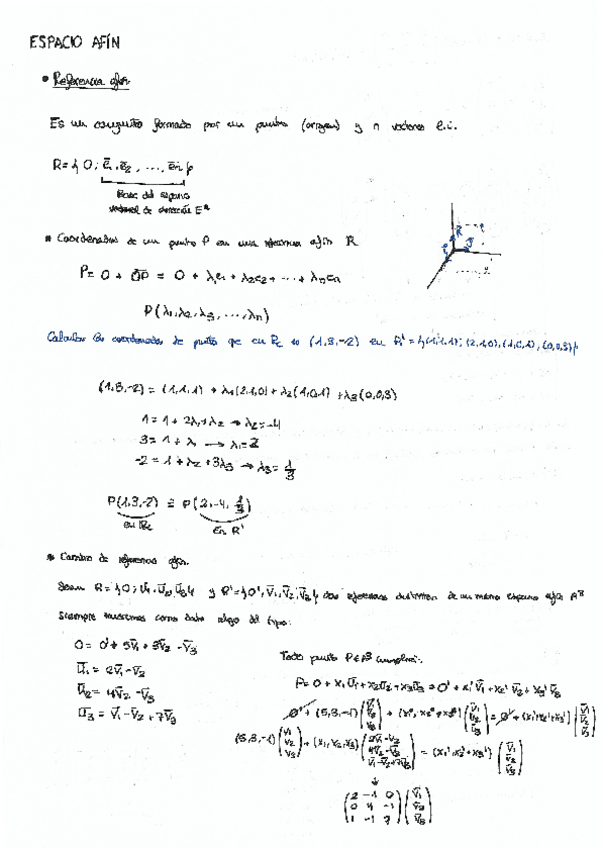 ESPACIO AFÍN
• Referencia afín
Es un conjunto formado por un punto (origen) y n vectores l.i.
R = { O; e̅₁, e̅₂, ..., e̅n }
Base del espacio
vectorial de dirección Eⁿ
* Coordenadas de un punto P en una referencia afín R
P = O + O̅P̅ = O + λ₁e₁ + λ₂e₂ + ... + λnen
P(λ₁, λ₂, λ₃, ..., λn)
Calcular las coordenadas de punto que en Rc es (1,3,-2) en R' = {(1,1,1); (2,1,0), (1,0,1), (0,0,3)}
(1,3,-2) = (1,1,1) + λ₁(2,1,0) + λ₂(1,0,1) + λ₃(0,0,3)
1 = 1 + 2λ₁ + λ₂ → λ₂ = -4
3 = 1 + λ₁ → λ₁ = 2
-2 = 1 + λ₂ + 3λ₃ → λ₃ = 1/3
P(1,3,-2) ≅ P(2,-4, 1/3)
en Rc en R'
* Cambio de referencia afín.
Sean R = {O; u̅₁, u̅₂, u̅₃} y R' = {O', v̅₁, v̅₂, v̅₃} dos referencias distintas de un mismo espacio afín A³
Siempre tendremos como dato algo del tipo:
O = O' + 5v̅₁ + 3v̅₂ - v̅₃
u̅₁ = 2v̅₁ - v̅₂
u̅₂ = 4v̅₂ - v̅₃
u̅₃ = v̅₁ - v̅₂ + 7v̅₃
Todo punto P∈A³ cumplirá:
P = O + x₁u̅₁ + x₂u̅₂ + x₃u̅₃ = O' + x₁'v̅₁ + x₂'v̅₂ + x₃'v̅₃
(5,3,-1) (v₁ v₂ v₃) + (x₁,x₂,x₃) (2v̅₁-v̅₂ 4v̅₂-v̅₃ v̅₁-v̅₂+7v̅₃) = (x₁' x₂' x₃') (v̅₁ v̅₂ v̅₃)
(2 -1 0
0 4 -1
1 -1 7) (v̅₁ v̅₂ v̅₃)